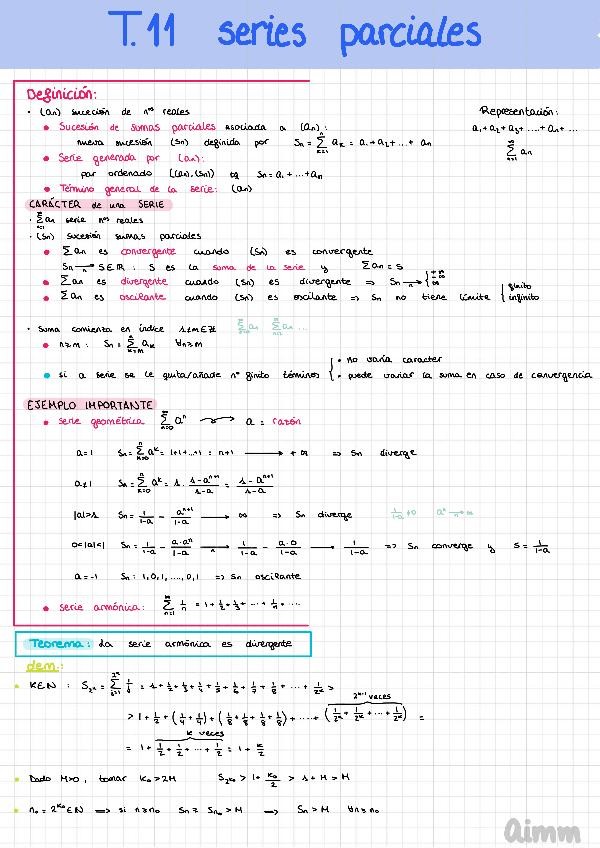 T.11 series parciales
Definición:
· (an) sucesión de nºs reales
• Sucesión de sumas parciales asociada a (an):
nueva sucesión (Sn) definida por Sn = ∑_{k=1}^{n} ak = a1 + a2 + ... + an
• Serie generada por (an):
par ordenado ((an),(Sn)) tq Sn = a1 + ... + an
• Término general de la serie: (an)
Representación:
a1 + a2 + a3 + .... + an + ...
∑_{n=1}^{∞} an
CARÁCTER de una SERIE
· ∑_{n=1}^{∞} an serie nºs reales
· (Sn) sucesión sumas parciales
• ∑an es convergente cuando (Sn) es convergente
Sn →_n S∈ℝ : S es la suma de la serie y ∑an = S
• ∑an es divergente cuando (Sn) es divergente ⇒ Sn →_n { +∞ -∞
• ∑an es oscilante cuando (Sn) es oscilante ⇒ Sn no tiene límite { finito infinito
· Suma comienza en índice 1≠m∈ℤ
• n≥m : Sn = ∑_{k=m}^{n} ak ∀n≥m
• si a serie se le quita/añade nº finito términos { • no varía caracter
• puede variar la suma en caso de convergencia
EJEMPLO IMPORTANTE
• serie geométrica ∑_{n=0}^{∞} a^n ⟿ a = razón
a=1 Sn = ∑_{k=0}^{n} a^k = 1+1+...+1 = n+1 ⟶ +∞ ⇒ Sn diverge
a≠1 Sn = ∑_{k=0}^{n} a^k = 1 · (1-a^{n+1})/(1-a) = (1-a^{n+1})/(1-a)
|a|>1 Sn = 1/(1-a) - a^{n+1}/(1-a) ⟶ ∞ ⇒ Sn diverge 1/(1-a) ≠ 0 a^n →_n ∞
0<|a|<1 Sn = 1/(1-a) - a·a^n/(1-a) →_n 1/(1-a) - a·0/(1-a) ⟶ 1/(1-a) ⇒ Sn converge y S = 1/(1-a)
a=-1 Sn : 1, 0, 1, ...., 0, 1 ⇒ Sn oscilante
• serie armónica: ∑_{n=1}^{∞} 1/n = 1 + 1/2 + 1/3 + ... + 1/n + ....
Teorema: La serie armónica es divergente
dem.:
• K∈ℕ : S_{2^k} = = 1 + 1/2 + 1/3 + 1/4 + 1/5 + 1/6 + 1/7 + 1/8 + ... + 1/2^k >
2^{k-1} veces
> 1 + 1/2 + (1/4 + 1/4) + (1/8 + 1/8 + 1/8 + 1/8) + .... + (1/2^k + 1/2^k + ... + 1/2^k) =
k veces
= 1 + 1/2 + 1/2 + ... + 1/2 = 1 + k/2
• Dado M>0, tomar k0 > 2M S_{2^{k0}} > 1 + k0/2 > 1 + M > M
• n0 = 2^{k0} ∈ ℕ ⟹ si n≥n0 Sn ≥ S_{n0} > M ⟹ Sn > M ∀n≥n0
aimm